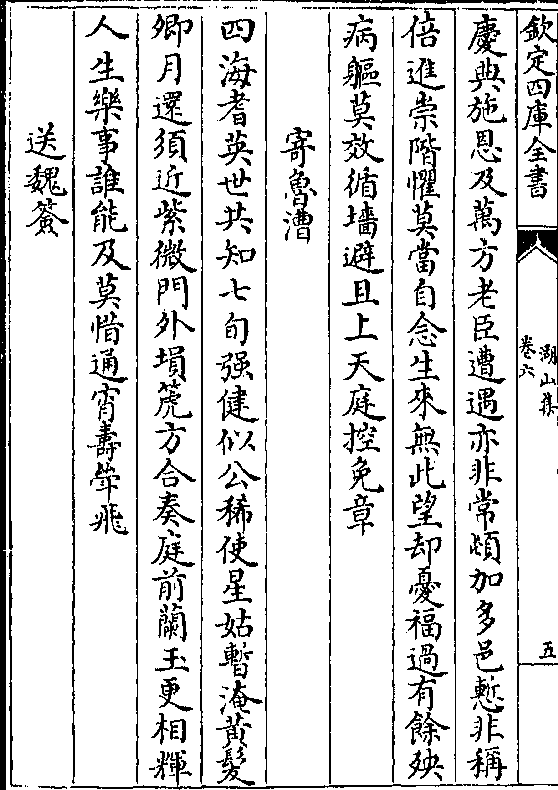 欽定四庫全書
湖山集
卷六
五
慶典施恩及萬方老臣遭遇亦非常頻加多邑慙非稱
倍進崇階懼莫當自念生來無此望却憂福過有餘殃
病軀莫效循墻避且上天庭控免章
寄魯漕
四海耆英世共知七旬强健似公稀使星姑暫淹黄髮
卿月還須近紫微門外塤箎方合奏庭前蘭玉更相輝
人生樂事誰能及莫惜通宵壽斝飛
送魏簽